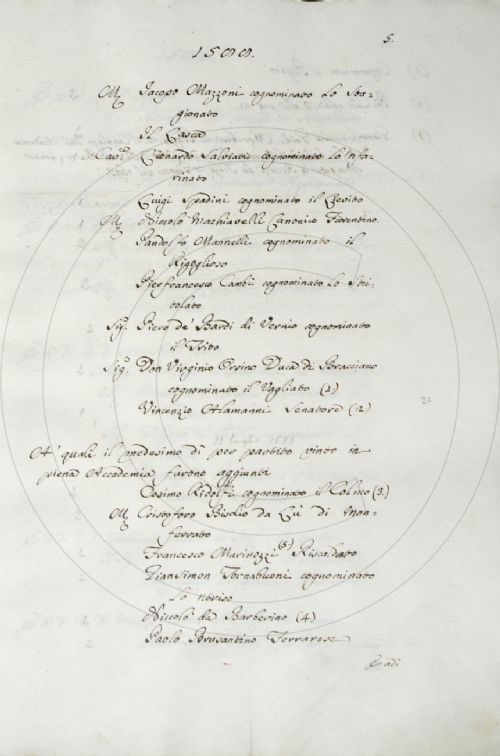 5.
1588.
M. Jacopo Mazzoni cognominato lo Sta-
gionato
Il Lasca
Cav.r Lionardo Salviati cognominato lo 'nfa-
rinato
Luigi Spadini cognominato il
M. Niccolò Machiavelli Canonico Fiorentino.
Pandolfo Mannelli cognominato il
Rigoglioso
Pierfrancesco Cambi cognominato lo Sti-
tolato
Sig.r Piero de' Bardi di Vernio cognominato
il Trito
Sig.r Don Virginio Orsino Duca di Bracciano
cognominato il Vagliato (1)
Vincenzio Alamanni Senatore (2)
12 luglio 1588
A' quali il medesimo dì per partito vinto in
piena Accademia furono aggiunti
Cosimo Ridolfi cognominato il Colmo (3)
M. Cristoforo da di Mon-
ferrato
Francesco Marinozzi Riscaldato
Giansimon Tornabuoni cognominato
lo 'ntriso
Niccolò da Barberino (4)
Paolo Brusantino Ferrarese
22